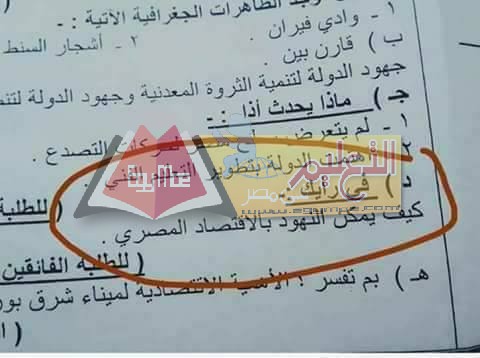 توجد الظاهرات الجغرافية الآتية : -
١ - وادي فيران
٢ - أشجار السنط
ب ) قارن بين .
جهود الدولة لتنمية الثروة المعدنية وجهود الدولة لتنم
جـ ) ماذا يحدث أذا : -
١ - لم يتعرض لحركات التصدع .
٢ - اهتمت الدولة بتطوير التعليم الفني .
د ) في رأيك : -
( للطلبة
كيف يمكن النهود بالاقتصاد المصري .
( للطلبة الفائقين
هـ ) بم تفسر : الأهمية الاقتصادية لميناء شرق بور